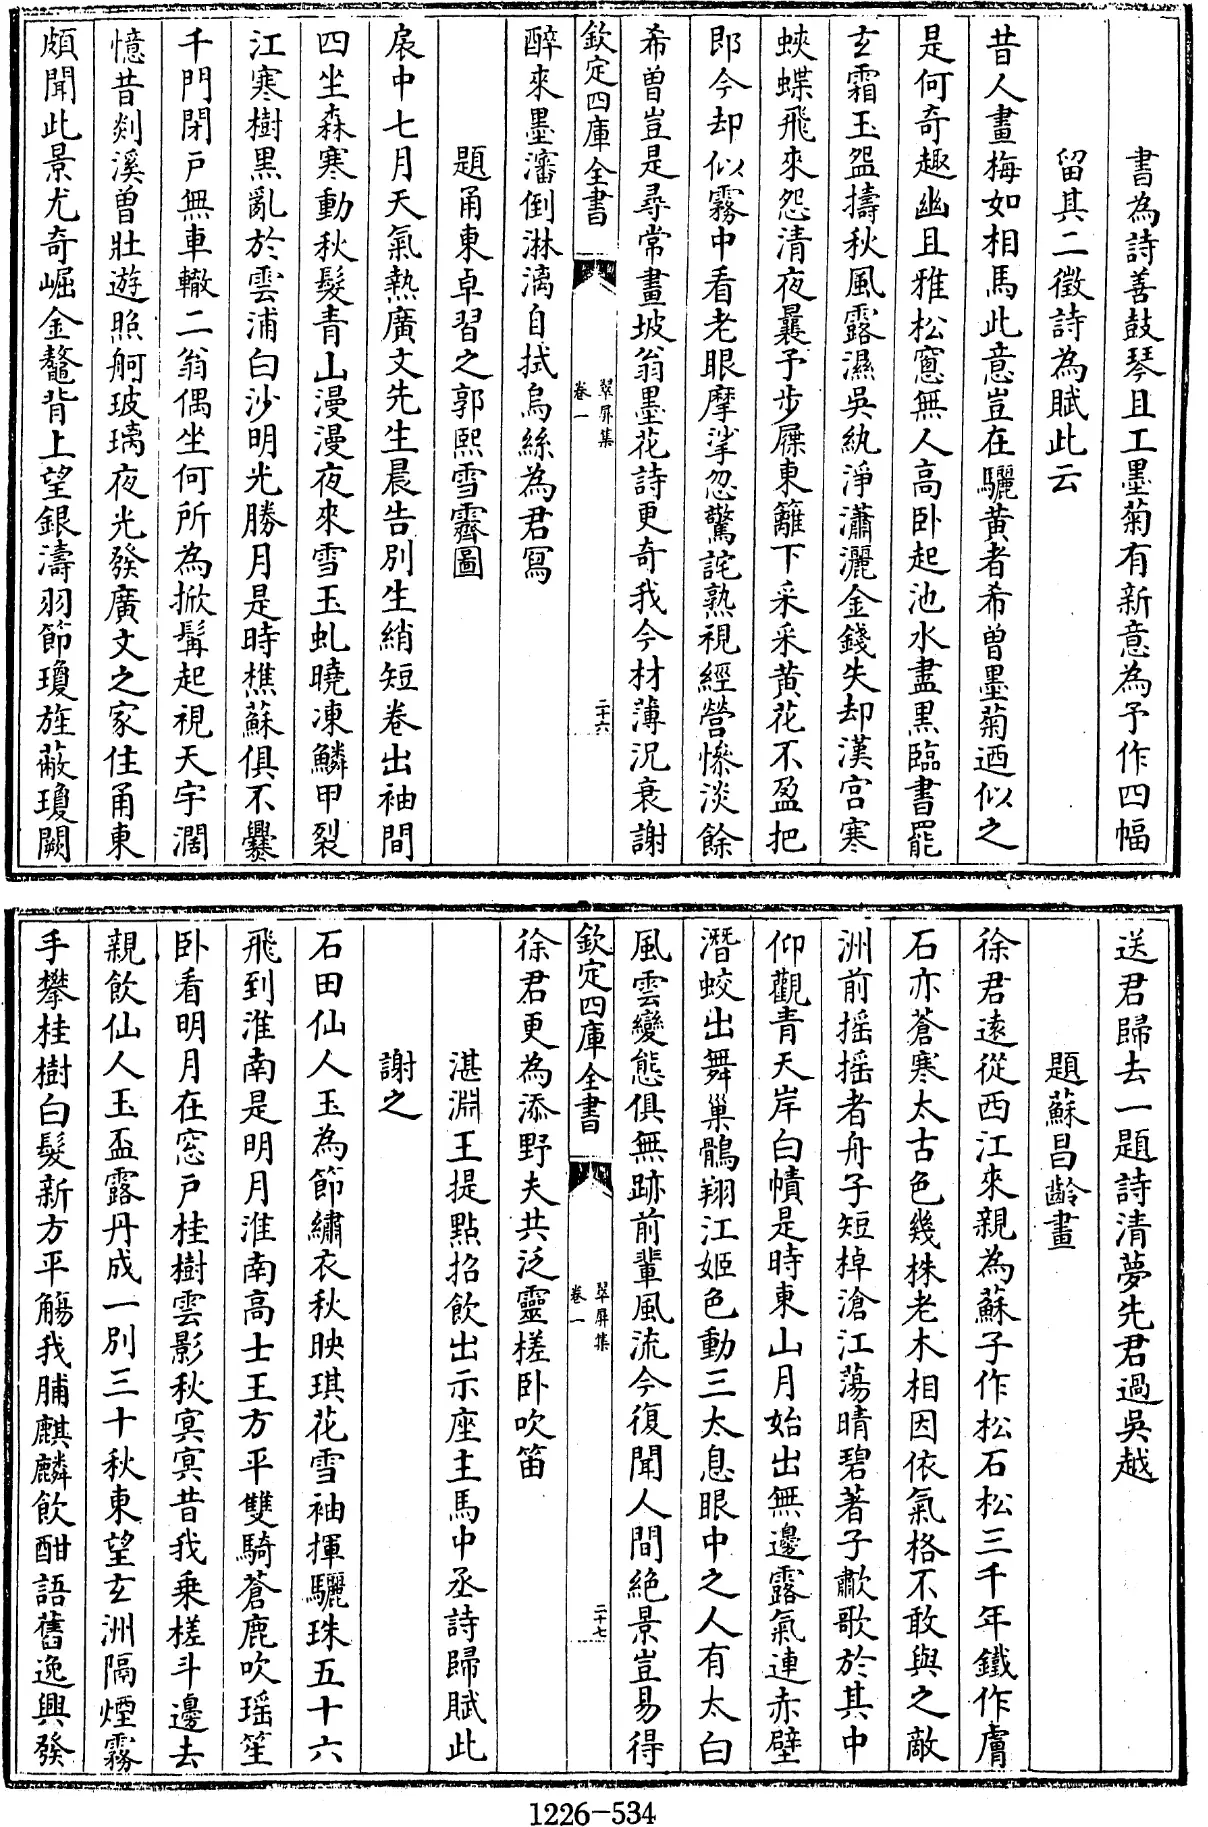 書為詩善鼓琴且工墨菊有新意為予作四幅
留其二徵詩為賦此云
昔人畫梅如相馬此意豈在驪黄者希曽墨菊迺似之
是何奇趣幽且雅松窻無人髙卧起池水盡黒臨書罷
玄霜玉盌擣秋風露濕吳紈淨瀟灑金錢失却漢宫寒
蛺蝶飛來怨清夜曩予步屧東籬下采采黄花不盈把
即今却似霧中看老眼摩挲忽驚詫熟視經營慘淡餘
希曽豈是尋常畫坡翁墨花詩更奇我今材薄況衰謝
欽定四庫全書
翠屏集
卷一
二十六
醉來墨瀋倒淋漓自拭烏絲為君冩
題甬東卓習之郭熙雪霽圖
扆中七月天氣熱廣文先生晨告別生綃短卷出袖間
四坐森寒動秋髮青山漫漫夜來雪玉虬曉凍鱗甲裂
江寒樹黒亂於雲浦白沙明光勝月是時樵蘇俱不爨
千門閉戸無車轍二翁偶坐何所為掀髯起視天宇濶
憶昔剡溪曽壯遊照舸玻璃夜光發廣文之家住甬東
頗聞此景尤奇崛金鼇背上望銀濤羽節瓊旌蔽瓊闕
送君歸去一題詩清夢先君過吳越
題蘇昌齡畫
徐君逺從西江來親為蘇子作松石松三千年鐵作膚
石亦蒼寒太古色幾株老木相因依氣格不敢與之敵
洲前摇摇者舟子短棹滄江蕩晴碧著子歗歌於其中
仰觀青天岸白幘是時東山月始出無邊露氣連赤壁
潛蛟出舞巢鶻翔江姬色動三太息眼中之人有太白
風雲變態俱無跡前輩風流今復聞人間絶景豈易得
欽定四庫全書
翠屏集
卷一
二十七
徐君更為添野夫共泛靈槎卧吹笛
湛淵王提點招飲出示座主馬中丞詩歸賦此
謝之
石田仙人玉為節繡衣秋映琪花雪袖揮驪珠五十六
飛到淮南是明月淮南髙士王方平雙騎蒼鹿吹瑶笙
卧看明月在窓戸桂樹雲影秋冥冥昔我乗槎斗邊去
親飲仙人玉盃露丹成一別三十秋東望玄洲隔煙霧
手攀桂樹白髮新方平觴我脯麒麟飲酣語舊逸興發
1226-534